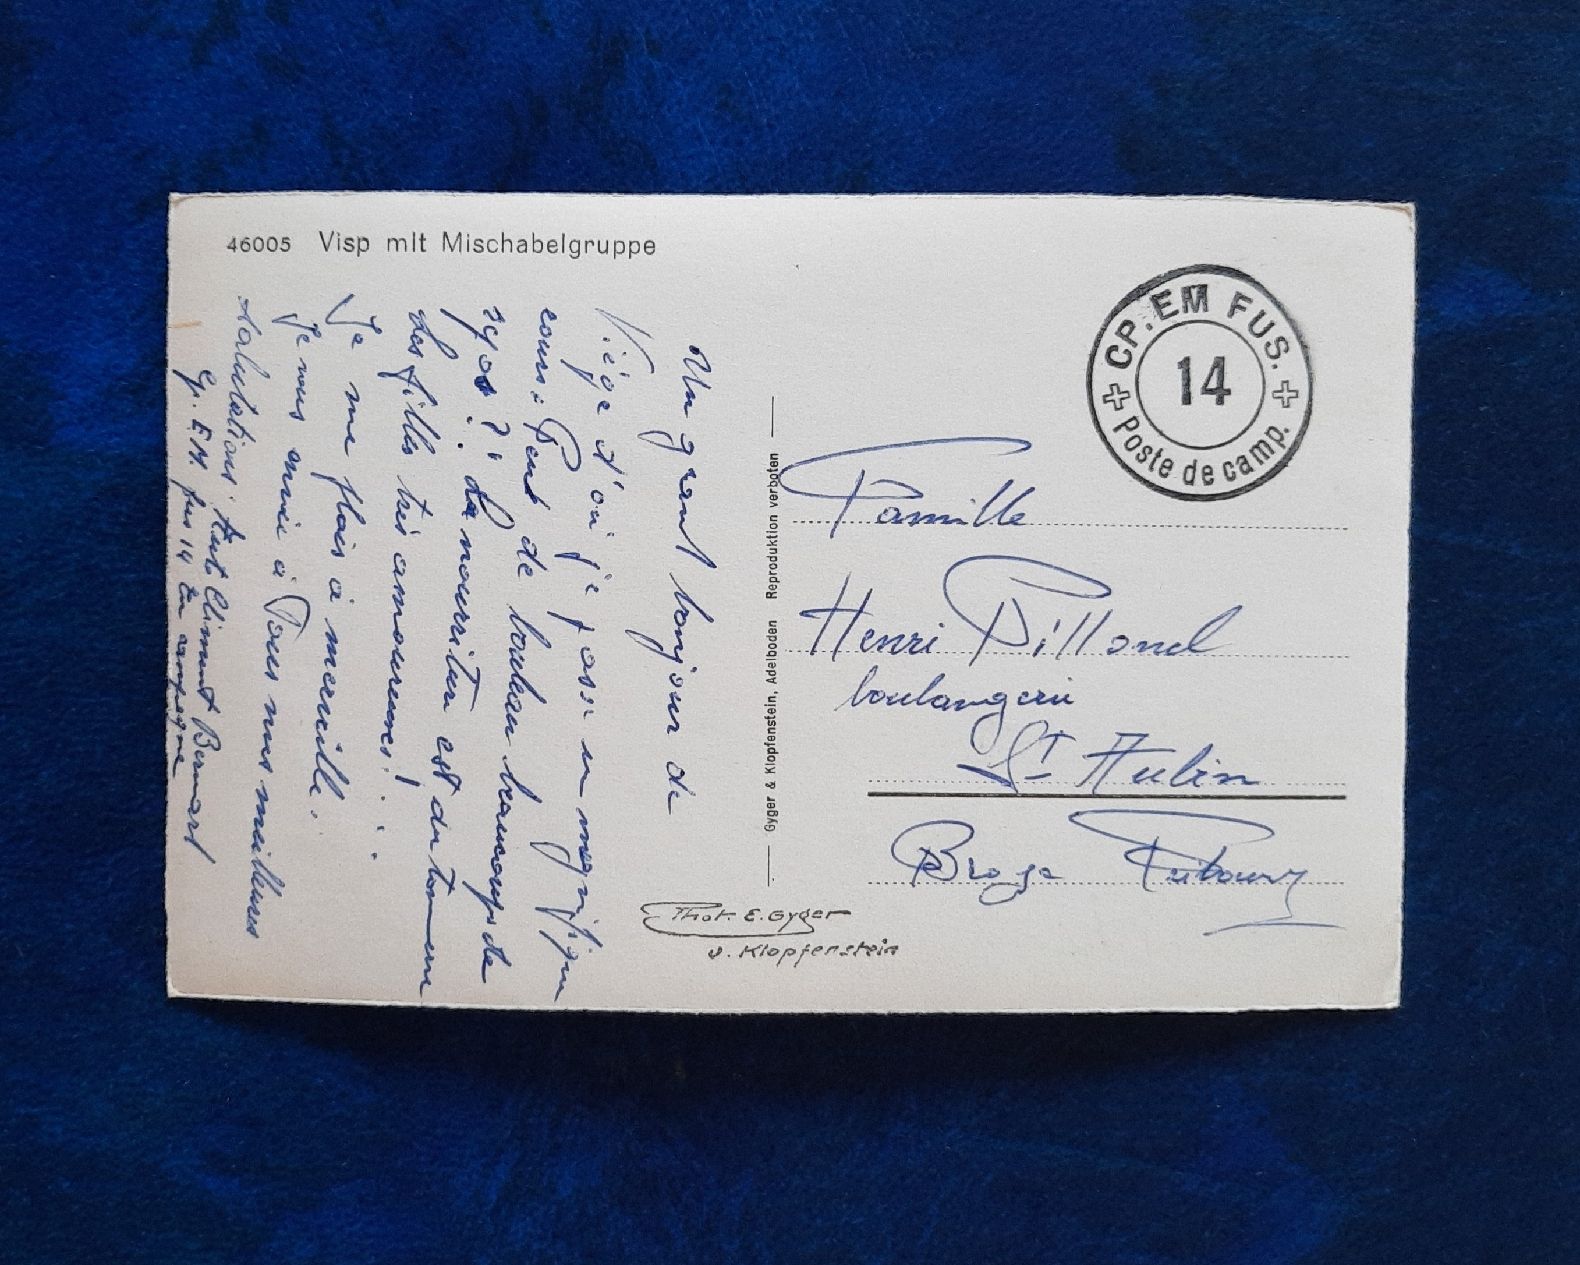 46005 Visp mit Mischabelgruppe
Un grand bonjour de
Viège d'où je passe un magnifique
cours. Peut de boulau beaucoup de
repos?! La nourriture est du tonnerre
Les filles très amoureuses!
Je me plais à merveille.
Je vous envoie à Tous mes meilleures
salutations. Clément Bernard
Cp. E.M. fus 14 En campagne
Gyger & Klopfenstein, Adelboden Reproduktion verboten
CP. EM FUS.
14
Poste de camp.
Famille
Henri Pillonel
boulangerie
St Aubin
Broye Fribourg
Phot. E. Gyger
u. Klopfenstein